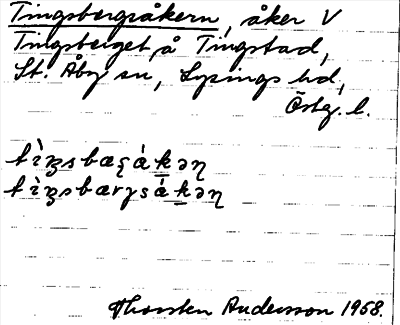 Tingsbergsåkern, åker V
Tingsberget å Tingstad,
St. Åby sn, Lysings hd,
Östg. l.
tìŋsbæʂákəɳ
tìŋsbærgsákəɳ
Thorsten Andersson 1958.